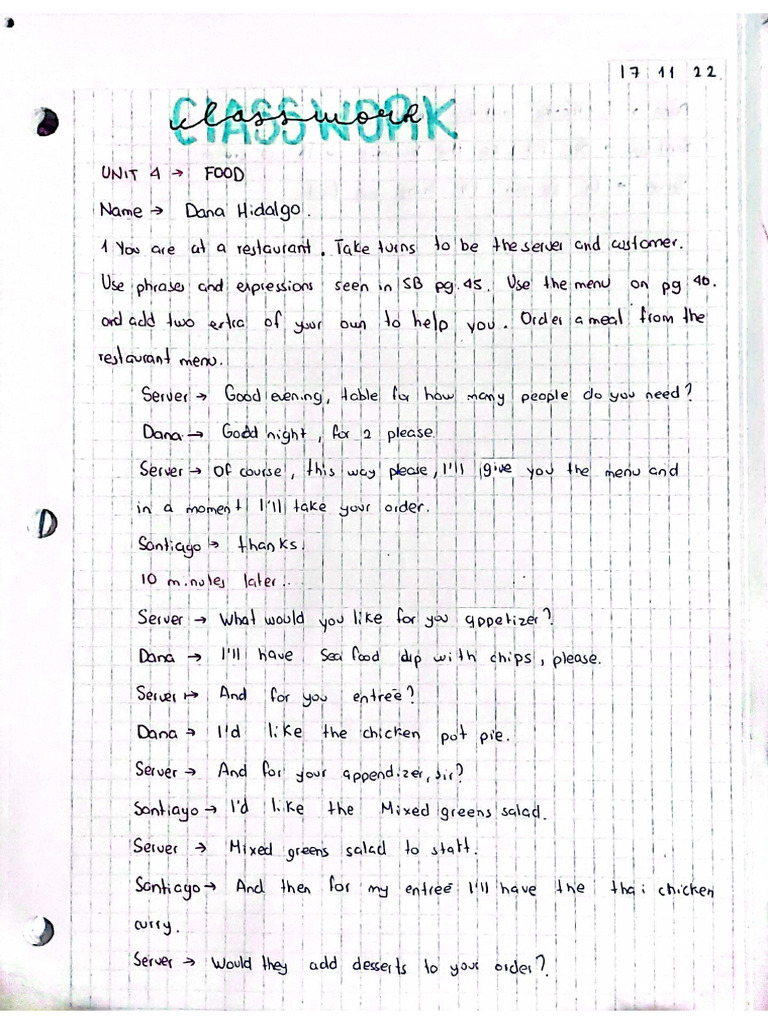 17 11 22
CLASSWORK
classwork
UNIT 4 → FOOD
Name → Dana Hidalgo.
1 You are at a restaurant. Take turns to be the server and customer.
Use phrases and expressions seen in SB pg. 45. Use the menu on pg 46.
and add two extra of your own to help you. Order a meal from the
restaurant menu.
Server → Good evening, table for how many people do you need?
Dana → Good night, for 2 please
Server → Of course, this way please, I'll give you the menu and
in a moment I'll take your order.
Santiago → thanks.
10 minutes later..
Server → What would you like for you appetizer?
Dana → I'll have sea food dip with chips, please.
Server → And for you entreé?
Dana → I'd like the chicken pot pie.
Server → And for your appendizer, sir?
Santiago → I'd like the Mixed greens salad.
Server → Mixed greens salad to start.
Santiago → And then for my entreé I'll have the thai chicken
curry.
Server → Would they add desserts to your order?